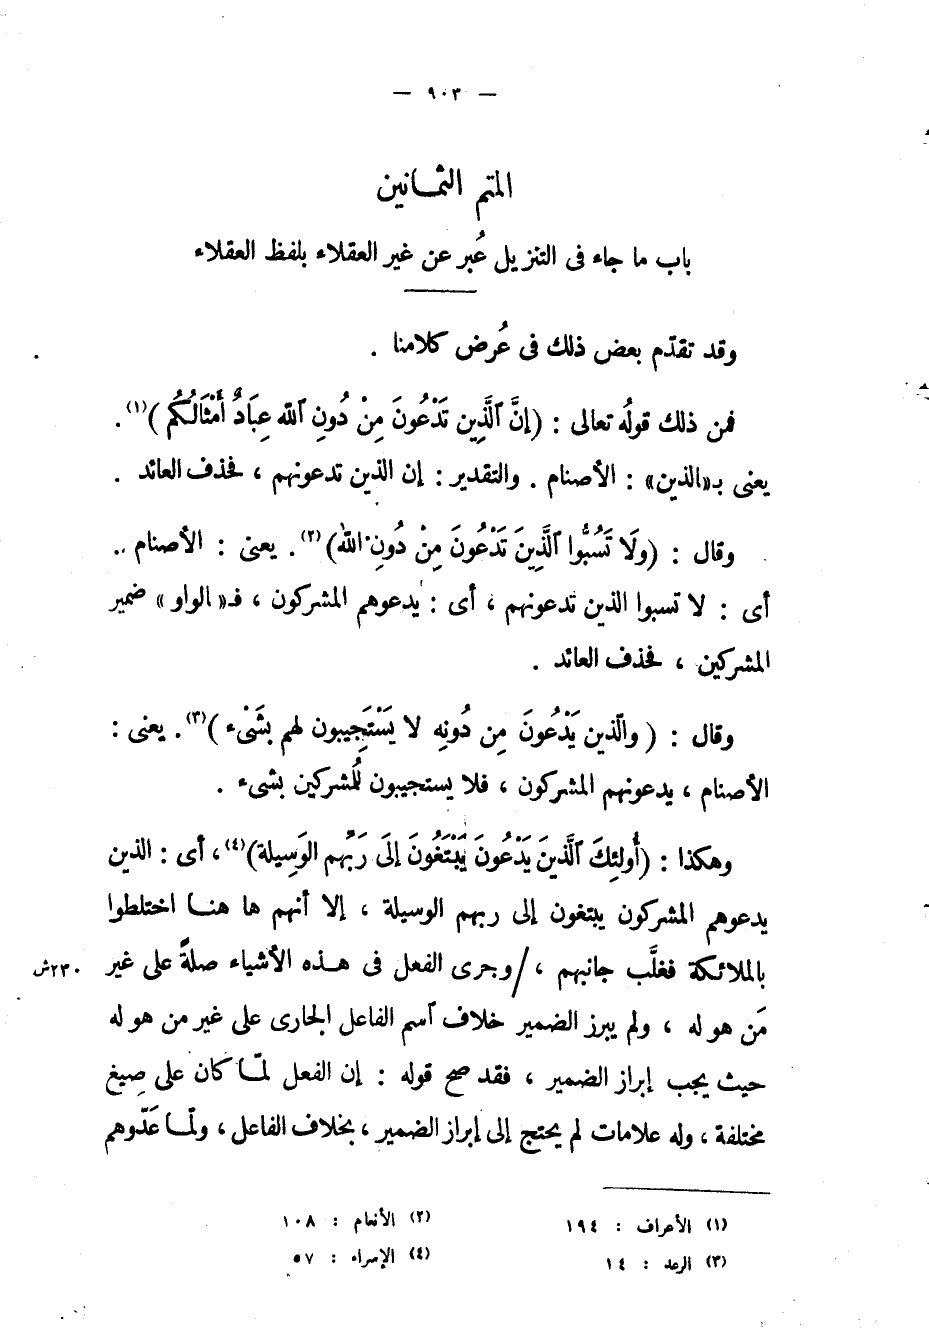 — ٩٠٣ —
المتم الثمـانين
باب ما جاء فى التنزيل عُبر عن غير العقلاء بلفظ العقلاء
وقد تقدّم بعض ذلك فى عُرض كلامنا .
فمن ذلك قولُه تعالى : (إنَّ ٱلَّذِين تَدْعُونَ مِنْ دُونِ ٱلله عِبَادٌ أَمْثَالُكُم )(١) .
يعنى بـ«الذين» : الأصنام . والتقدير : إن الذين تدعونهم ، فحذف العائد .
وقال : (ولَا تَسُبُّوا ٱلَّذِينَ تَدْعُونَ مِنْ دُونِ الله)(٢) . يعنى : الأصنام ..
أى : لا تسبوا الذين تدعونهم ، أى : يدعوهم المشركون ، فـ« الواو » ضمير
المشركين ، فحذف العائد .
وقال : ( والّذين يَدْعُونَ مِن دُونِه لا يَسْتَجِيبون لهم بشَىْء )(٣) . يعنى :
الأصنام ، يدعونهم المشركون ، فلا يستجيبون للُمشركين بشىء .
وهكذا : (أُولئِكَ ٱلَّذينَ يَدْعُونَ يَبْتَغُونَ إلَى رَبِّهم الوَسِيلة)(٤) ، أى : الذين
يدعوهم المشركون يبتغون إلى ربهم الوسيلة ، إلا أنهم ها هنـا اختلطوا
بالملائكة فغلَّب جانبهم ، / وجرى الفعل فى هـذه الأشياء صلةً على غير ٢٣٠ش
مَن هو له ، ولم يبرز الضمير خلاف ٱسم الفاعل الجارى على غير من هو له
حيث يجب إبراز الضمير ، فقد صح قوله : إن الفعل لمّـا كان على صِيغ
مختلفة ، وله علامات لم يحتج إلى إبراز الضمير ، بخلاف الفاعل ، ولمّـا عَدّوهم
(١) الأعراف : ١٩٤ (٢) الأنعام : ١٠٨
(٣) الرعد : ١٤ (٤) الإسراء : ٥٧